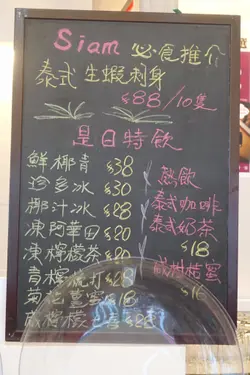 Siam 必食推介
泰式生蝦刺身
$88/10隻
是日特飲
鮮椰青 $38
珍多冰 $30
椰汁冰 $28
凍阿華田 $20
凍檸檬茶 $20
青檸梳打 $28
菊花薑蜜 $18
咸檸檬
熱飲
泰式咖啡
泰式奶茶
$18
咸柑桔蜜
$18